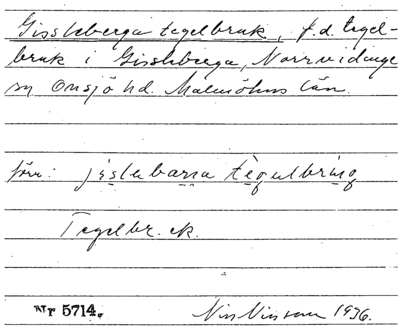 Gissleberga tegelbruk, f.d. tegel-
bruk i Gissleberga, Norrvidinge
sn Onsjö hd. Malmöhus län.
jislabarra tegulbring
Tegelbr. ek.
Nr 5714. Nils Nilsson 1936.